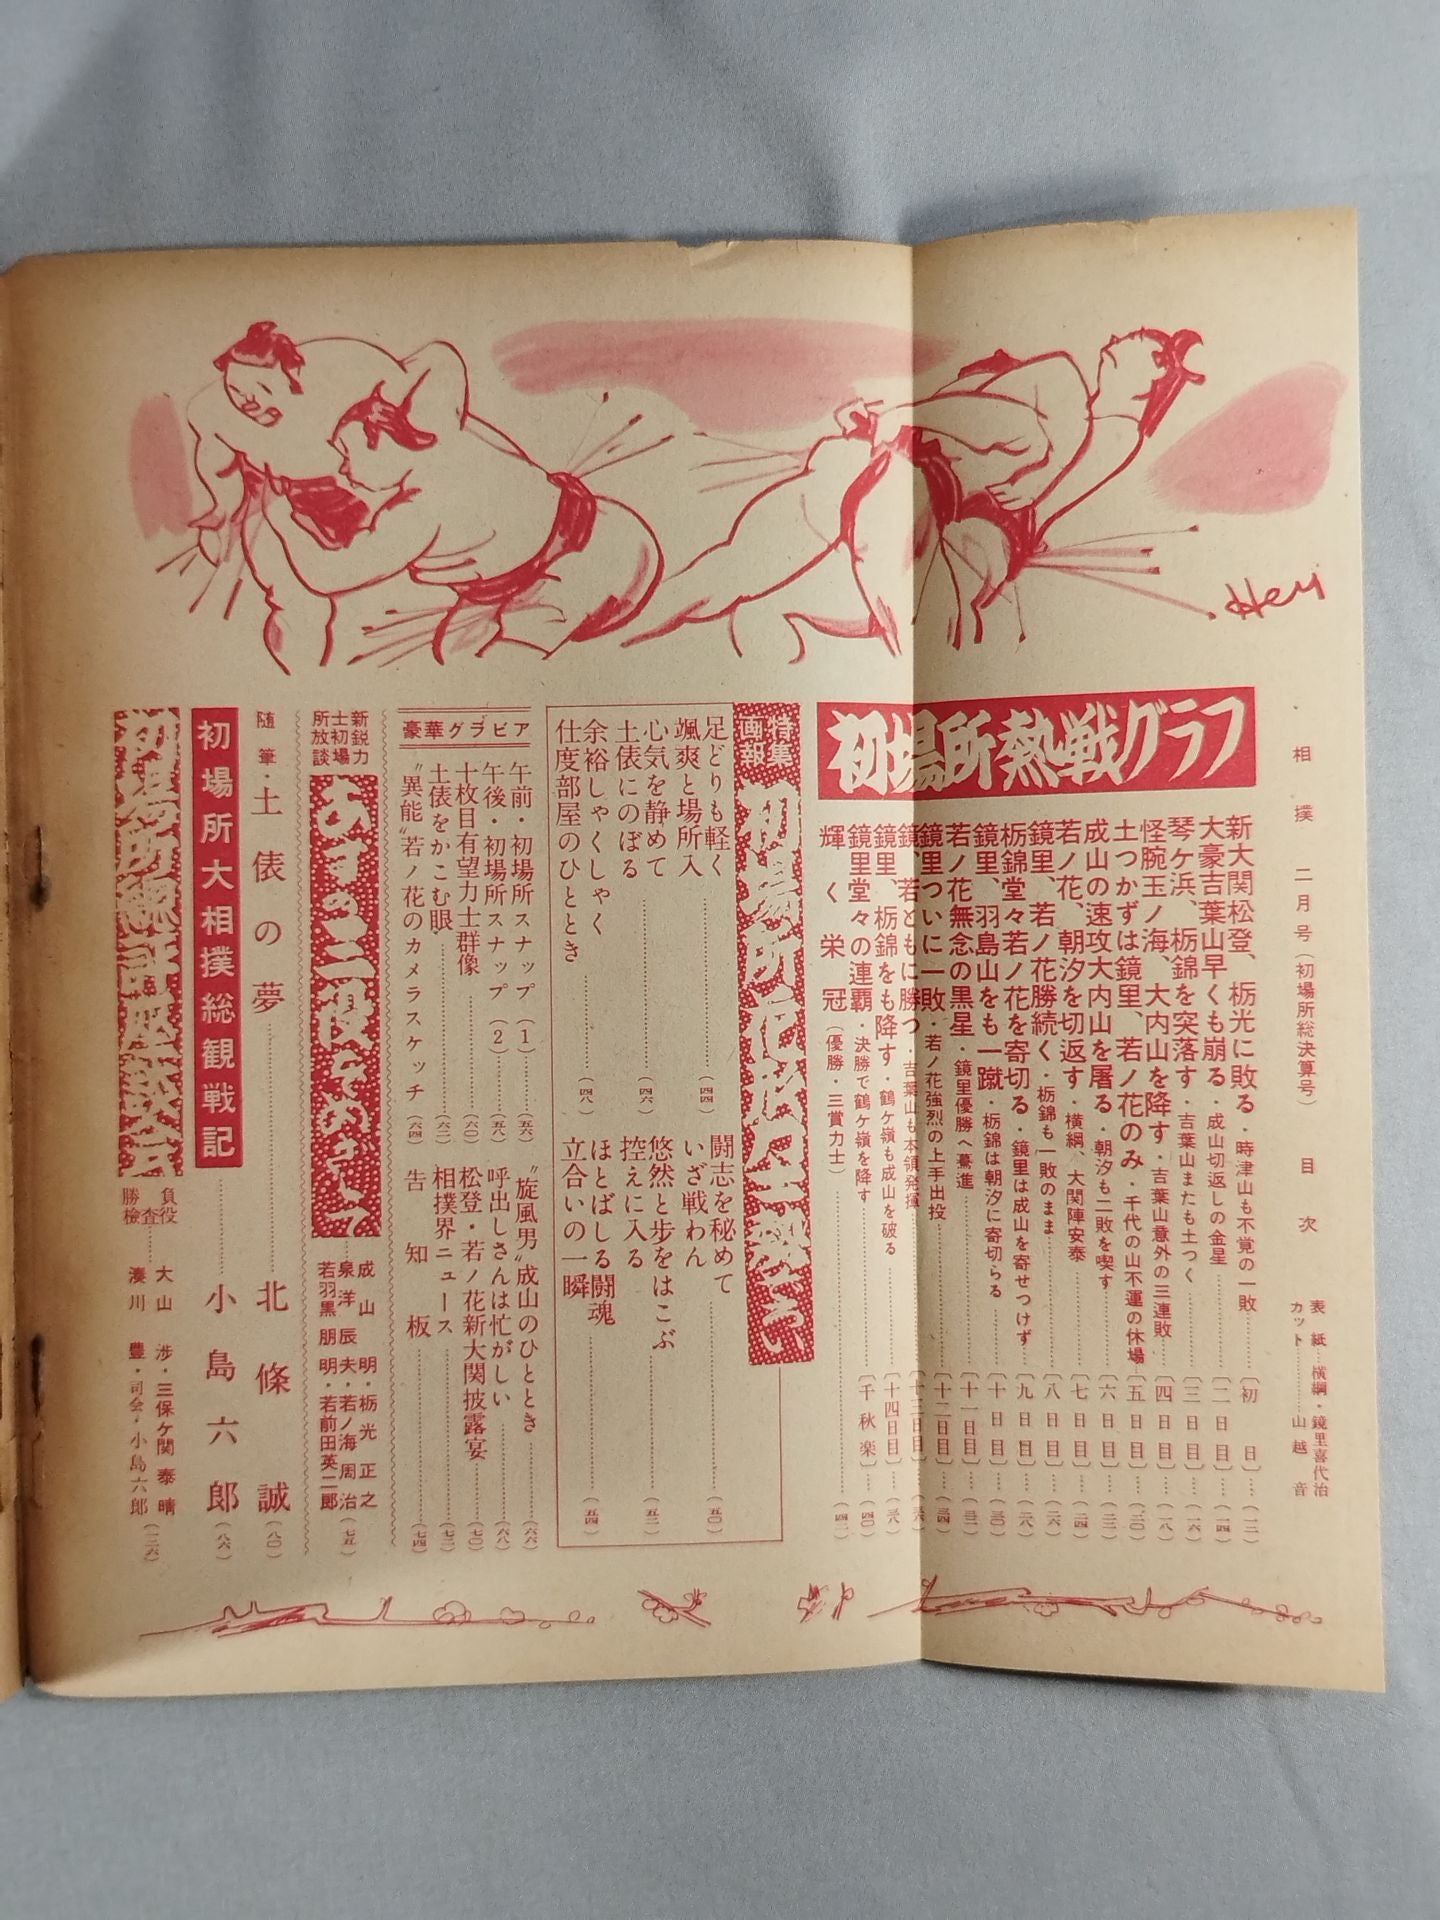 Hey
相撲 二月号（初場所総決算号） 目次
表紙…横綱・鏡里喜代治
カット…………山越音
初場所熱戦グラフ
新大関松登、栃光に敗る・時津山も不覚の一敗………〔初日〕…（一二）
大豪吉葉山早くも崩る・成山切返しの金星…………〔二日目〕…（一四）
琴ケ浜、栃錦を突落す・吉葉山またも土つく………〔三日目〕…（一六）
怪腕玉ノ海、大内山を降す・吉葉山意外の三連敗……〔四日目〕…（一八）
土つかずは鏡里、若ノ花のみ・千代の山不運の休場…〔五日目〕…（二〇）
成山の速攻大内山を屠る・朝汐も二敗を喫す…………〔六日目〕…（二二）
若ノ花、朝汐を切返す・横綱、大関陣安泰……………〔七日目〕…（二四）
鏡里、若ノ花勝続く・栃錦も一敗のまま………………〔八日目〕…（二六）
栃錦堂々若ノ花を寄切る・鏡里は成山を寄せつけず…〔九日目〕…（二八）
鏡里、羽島山をも一蹴・栃錦は朝汐に寄切らる………〔十日目〕…（三〇）
若ノ花無念の黒星・鏡里優勝へ驀進……………………〔十一日目〕…（三二）
鏡里ついに一敗・若ノ花強烈の上手出投………………〔十二日目〕…（三四）
鏡、若ともに勝つ・吉葉山も本領発揮…………………〔十三日目〕…（三六）
鏡里、栃錦をも降す・鶴ケ嶺も成山を破る……………〔十四日目〕…（三八）
鏡里堂々の連覇・決勝で鶴ケ嶺を降す…………………〔千秋楽〕…（四〇）
輝く栄冠（優勝・三賞力士）……………………………（四二）
特集画報
足どりも軽く
颯爽と場所入…………（四四）
心気を静めて
土俵にのぼる…………（四六）
余裕しゃくしゃく
仕度部屋のひととき…………（四八）
闘志を秘めて
いざ戦わん…………（五〇）
悠然と歩をはこぶ
控えに入る…………（五二）
ほとばしる闘魂
立合いの一瞬…………（五四）
豪華グラビア
午前・初場所スナップ（1）…………（五六）
午後・初場所スナップ（2）…………（五八）
十枚目有望力士群像…………（六〇）
土俵をかこむ眼…………（六二）
“異能”若ノ花のカメラスケッチ（六四）
“旋風男”成山のひととき…………（六六）
呼出しさんは忙がしい…………（六八）
松登・若ノ花新大関披露宴…………（七〇）
相撲界ニュース…………（七二）
告知板…………（七四）
新鋭力士初場所放談
成山明・栃光正之
泉洋辰夫・若ノ海周治
若羽黒朋明・若前田英二郎（七五）
随筆・土俵の夢…………北條誠（八〇）
初場所大相撲総観戦記…………小島六郎（八六）
初場所総評座談会
勝負検査役…………
大山渉・三保ケ関泰晴
湊川豊・司会・小島六郎（一二六）